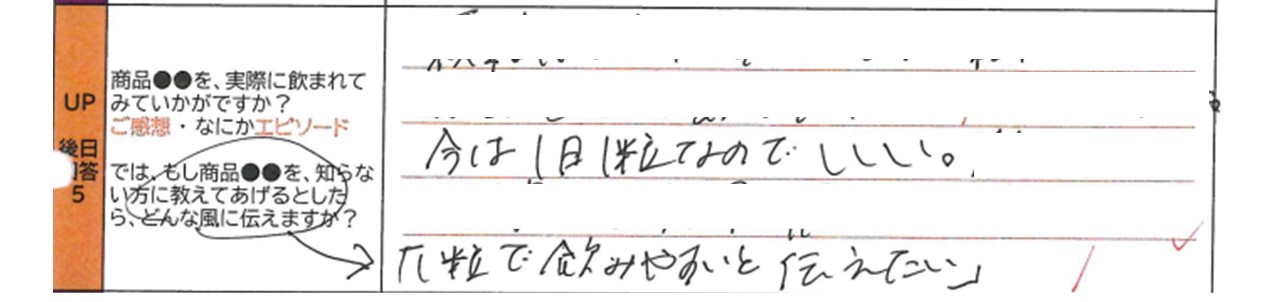 UP
後日
回答
5
商品●●を、実際に飲まれて
みていかがですか？
ご感想・なにかエピソード
では、もし商品●●を、知らな
い方に教えてあげるとした
ら、どんな風に伝えますか？
今は1日1粒なので いい。
「1粒で飲みやすいと伝えたい」